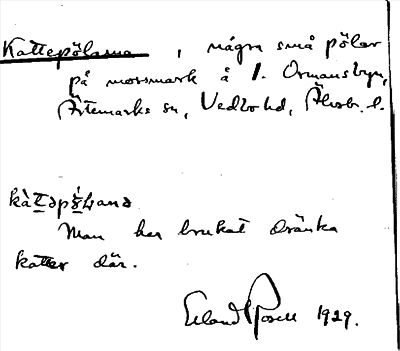 Kattepölarna, några små pölar
på mossmark å 1. Ormansbyn,
Ärtemarks sn, Vedbo hd, Älvsb. l.
Man har brukat dränka
katter där.
Erland Rosell 1929.